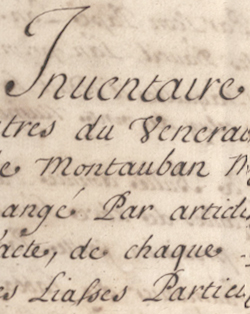 Inuentaire
tres du Venerab
e Montauban M
angé Par articl
acte, de chaque
es Liasses Particu